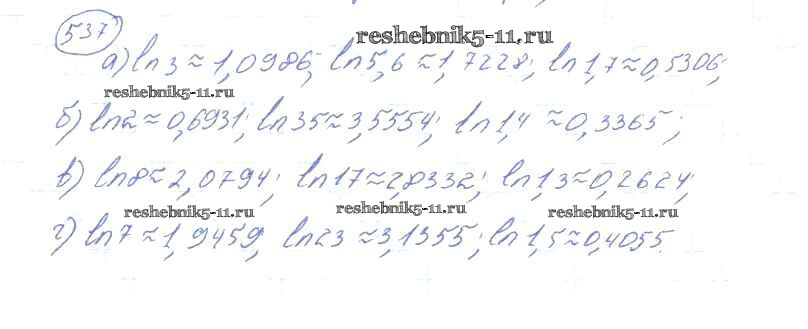 537 reshebnik5-11.ru
а) ln 3 ≈ 1,0986; ln 5,6 ≈ 1,7228; ln 1,7 ≈ 0,5306;
reshebnik5-11.ru
б) ln 2 ≈ 0,6931; ln 35 ≈ 3,5554; ln 1,4 ≈ 0,3365;
в) ln 8 ≈ 2,0794; ln 17 ≈ 2,8332; ln 1,3 ≈ 0,2624;
reshebnik5-11.ru reshebnik5-11.ru reshebnik5-11.ru
г) ln 7 ≈ 1,9459; ln 23 ≈ 3,1355; ln 1,5 ≈ 0,4055.